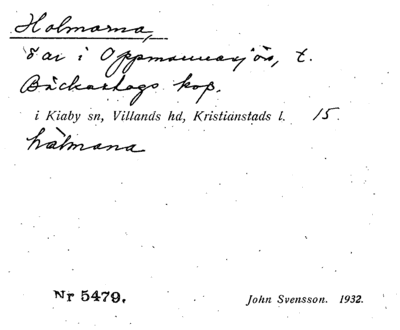 Holmarna,
öar i Oppmannasjön, t.
Bäckaskogs kop.
i Kiaby sn, Villands hd, Kristianstads l. 15.
hålmana
Nr 5479.
John Svensson. 1932.